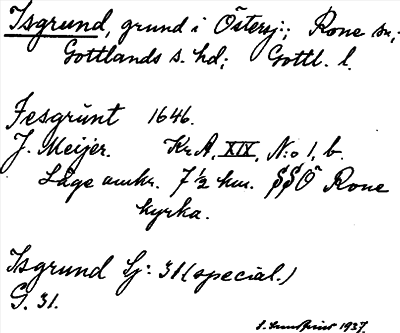 Isgrund, grund i Östersj:; Rone sn,
Gottlands s. hd; Gottl. l.
Fesgrünt 1646.
J. Meijer. Kr.A, XIX, N:o 1, b.
Läge omkr. 7 1/2 km. SSÖ Rone
kyrka.
Isgrund Sj: 31 (special.)
G. 31.
1937.